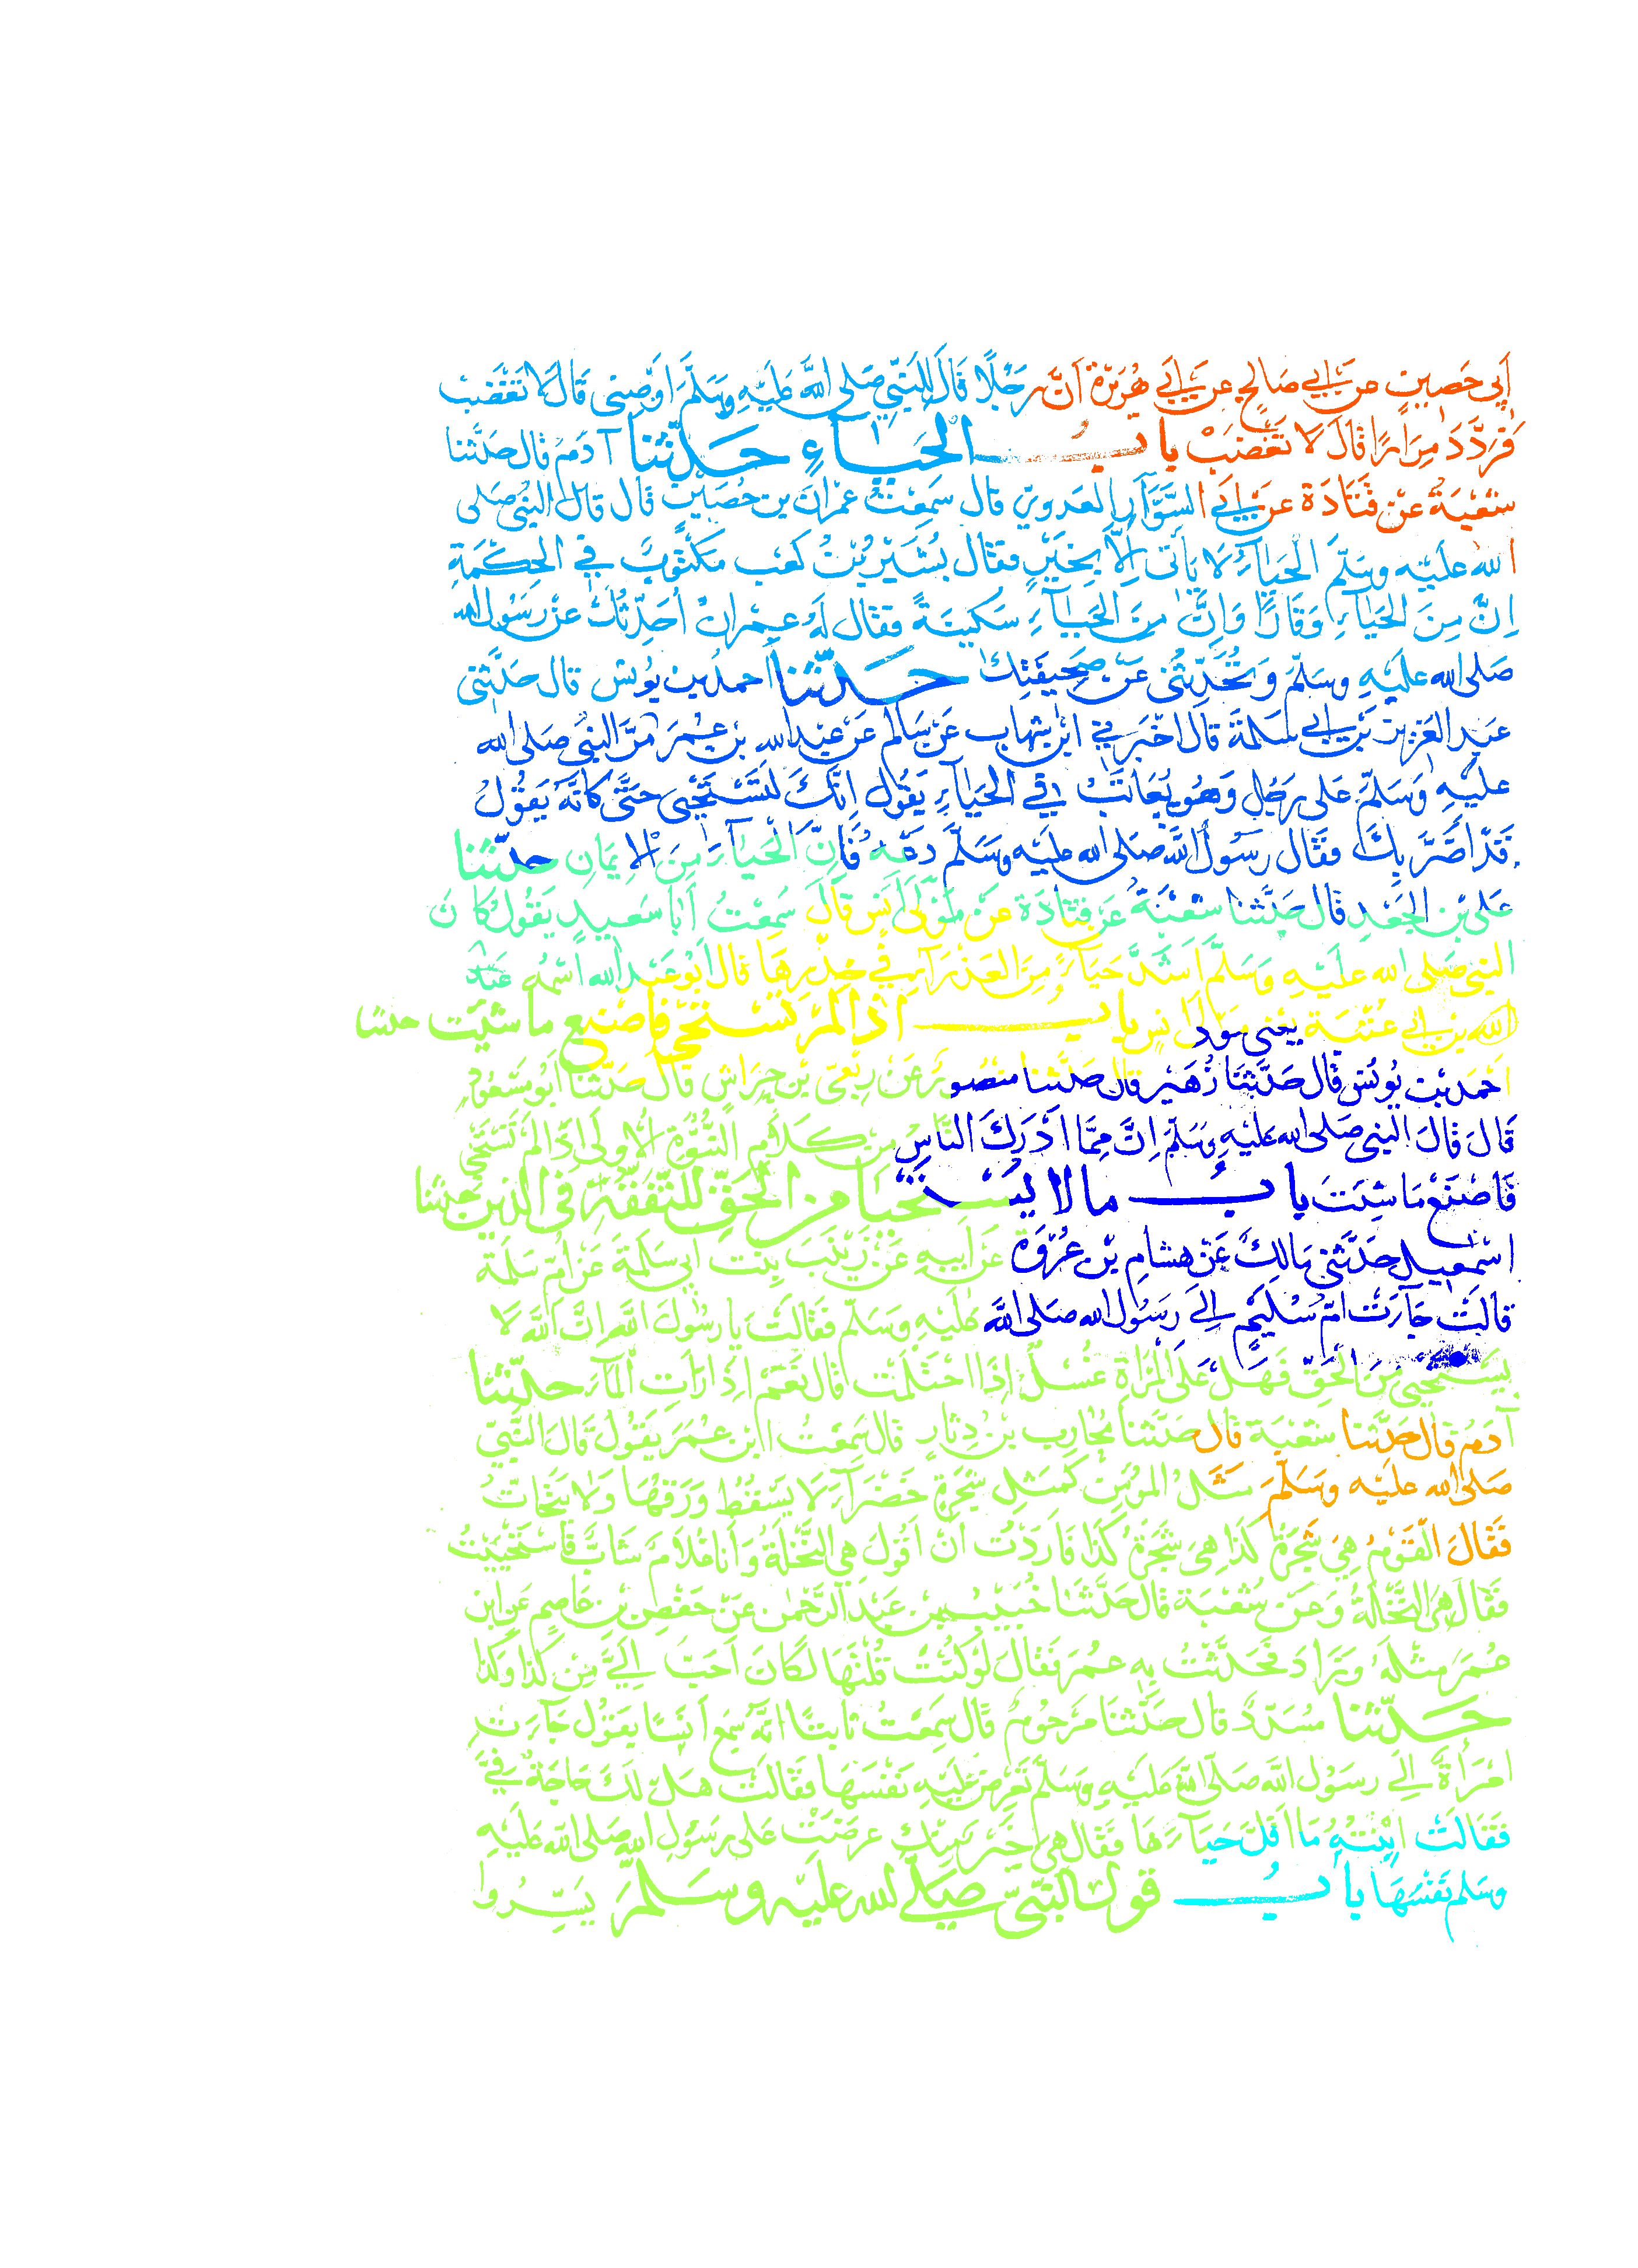 أَبِي حَصِينٍ عن أبي صَالِحٍ عن أبي هُرَيْرَةَ أَنَّ رَجُلًا قَالَ لِلنَّبِيِّ صَلَى اللَّهُ عَلَيْهِ وَسَلَّمَ أَوْصِنِي قَالَ لا تَغْضَبْ
فَرَدَّدَ مِرَارًا قَالَ لا تَغْضَبْ بابُ الحَيَاءِ حَدَّثَنَا آدَمُ قال حَدَّثَنَا
شُعْبَةُ عَنْ قَتَادَةَ عن أبي السَّوَّارِ العَدَوِيِّ قال سَمِعْتُ عِمْرَانَ بن حُصَيْنٍ قَال قال النبيُّ صَلى
اللهُ عَلَيْهِ وسَلَّمَ الحَيَاءُ لا يَأْتِى إِلَّا بِخَيْرٍ فقال بُشَيْرُ بْنُ كَعْبٍ مَكْتُوبٌ في الحِكْمَةِ
إِنَّ مِنَ الحَيَاءِ وَقَارًا وَإِنَّ مِنَ الحَيَاءِ سَكِينَةً فقال لَهُ عِمْرَانُ أُحَدِّثُكَ عَنْ رَسُولِ الله
صَلى الله عليْهِ وسَلَّمَ وَتُحَدِّثُنِى عَنْ صَحِيفَتِكَ حَدَّثَنَا أحمدُ بن يُونُسَ قال حَدَّثَنِى
عَبْدُ العَزِيزِ بْنُ أبي سَلَمَةَ قَالَ أَخْبَرَنِي ابْنُ شِهَابٍ عَنْ سَالِمٍ عَنْ عَبْدِ اللهِ بْنِ عُمَرَ مَرَّ النبيُّ صَلى الله
عليْهِ وَسَلَّمَ عَلى رَجُلٍ وَهُوَ يُعَاتَبُ في الحَيَاءِ يَقُولُ إِنَّكَ لَتَسْتَحْيِى حَتَّى كَأَنَّهُ يَقُولُ
قَدْ أَضَرَّ بِكَ فقَالَ رَسُولُ اللَّهِ صَلى الله عليْهِ وَسَلَّمَ دَعْهُ فَإِنَّ الحَيَاءَ مِنَ الإيمَانِ حدّثنا
عَلِى بْنُ الجَعْدِ قَالَ حَدَّثَنَا شُعْبَةُ عَنْ قَتَادَةَ عَنْ مَوْلَى أَنَسٍ قَالَ سَمِعْتُ أَبَا سَعِيدٍ يَقُولُ كَانَ
النبيُّ صَلى الله عليْهِ وَسَلَّمَ أَشَدَّ حَيَاءً مِنَ العَذْرَاءِ فِي خِدْرِهَا قال أبُو عَبْدِ الله اسْمُهُ عَبْدُ
الله بن أبي عُتْبَةَ يَعْنِى مَوْلَى أَنَسٍ بابُ إذا لَمْ تَسْتَحْيِ فَاصْنَعْ ما شِئْتَ حدثنا
يعنى مولى
أحمد بن يُونُسَ قَالَ حَدَّثَنَا زُهَيْر قال حَدَّثَنَا مَنْصُورٌ عَنْ رِبْعِيِّ بْنِ حِرَاشٍ قَالَ حَدَّثَنَا أَبُو مَسْعُودٍ
قَالَ قَالَ النبيُّ صَلى الله عليْهِ وَسَلَّمَ إِنَّ مِمَّا أَدْرَكَ النَّاسُ مِنْ كَلَامِ النُّبُوَّةِ الأُولَى إِذَا لَمْ تَسْتَحْيِ
فَاصْنَعْ مَا شِئْتَ بابُ ما لا يُسْتَحْيَا مِنَ الحَقِّ لِلتَّفَقُّهِ فِي الدِّينِ حدثنا
إسْمعِيل حَدَّثَنِى مَالِكٌ عَنْ هِشَامِ بْنِ عُرْوَةَ عَنْ أَبِيهِ عَنْ زَيْنَبَ بِنْتِ أَبِي سَلَمَةَ عَنْ أُمِّ سَلَمَةَ
قالَتْ جَاءَتْ أُمُّ سُلَيْمٍ إِلَى رَسُولِ الله صَلَى اللَّهُ عَلَيْهِ وَسَلَّمَ فَقَالَتْ يا رَسُولَ اللَّهِ إِنَّ اللَّهَ لَا
يَسْتَحْيِى مِنَ الحَقِّ فَهَلْ عَلَى المَرْأَةِ غُسْلٌ إِذَا احْتَلَمَتْ قَالَ نَعَمْ إِذَا رَأَتِ المَاءَ حدّثنا
آدَمُ قال حَدَّثَنَا شُعْبَةُ قَالَ حَدَّثَنَا مُحَارِبُ بْنُ دِثَارٍ قَالَ سَمِعْتُ ابنَ عُمَرَ يَقُولُ قَالَ النَّبِيُّ
صَلى الله عليْهِ وَسَلَّمَ مَثَلُ المُؤْمِنِ كَمَثَلِ شَجَرَةٍ خَضْرَاءَ لا يَسْقُطُ وَرَقُهَا وَلا يَتَحَاتُّ
فَقَالَ القَوْمُ هِيَ شَجَرَةُ كَذَا هِيَ شَجَرَةُ كَذَا فَأَرَدْتُ أَنْ أَقُولَ هِيَ النَّخْلَةُ وَأَنَا غُلَامٌ شَابٌّ فَاسْتَحْيَيْتُ
فَقَالَ هِيَ النَّخْلَةُ وَعَنْ شُعْبَةَ قَالَ حَدَّثَنَا خُبَيْبُ بْنُ عَبْدِ الرَّحْمٰنِ عَنْ حَفْصِ بْنِ عَاصِمٍ عَنِ ابْنِ
عُمَرَ مِثْلَهُ وَزَادَ فَحَدَّثْتُ بِهِ عُمَرَ فَقَالَ لَوْ كُنْتَ قُلْتَهَا لَكَانَ أَحَبَّ إِلَيَّ مِنْ كَذَا وَكَذَا
حَدَّثَنَا مُسَدَّدٌ قَالَ حَدَّثَنَا مَرْحُومٌ قَالَ سَمِعْتُ ثَابِتًا أَنَّهُ سَمِعَ أَنَسًا يَقُولُ جَاءَتِ
امْرَأَةٌ إِلَى رَسُولِ اللَّهِ صَلَى اللَّهُ عَلَيْهِ وَسَلَّمَ تَعْرِضُ عَلَيْهِ نَفْسَهَا فَقَالَتْ هَلْ لَكَ حَاجَةٌ فِيَّ
فَقَالَتْ ابْنَتُهُ مَا أَقَلَّ حَيَاءَهَا فَقَالَ هِيَ خَيْرٌ مِنْكِ عَرَضَتْ عَلَى رَسُولِ اللهِ صَلَى اللَّهُ عَلَيْهِ
وسَلم نَفْسَهَا بابُ قول النَّبِيِّ صَلَّى اللهُ عَلَيْهِ وَسَلَّمَ يَسِّرُوا